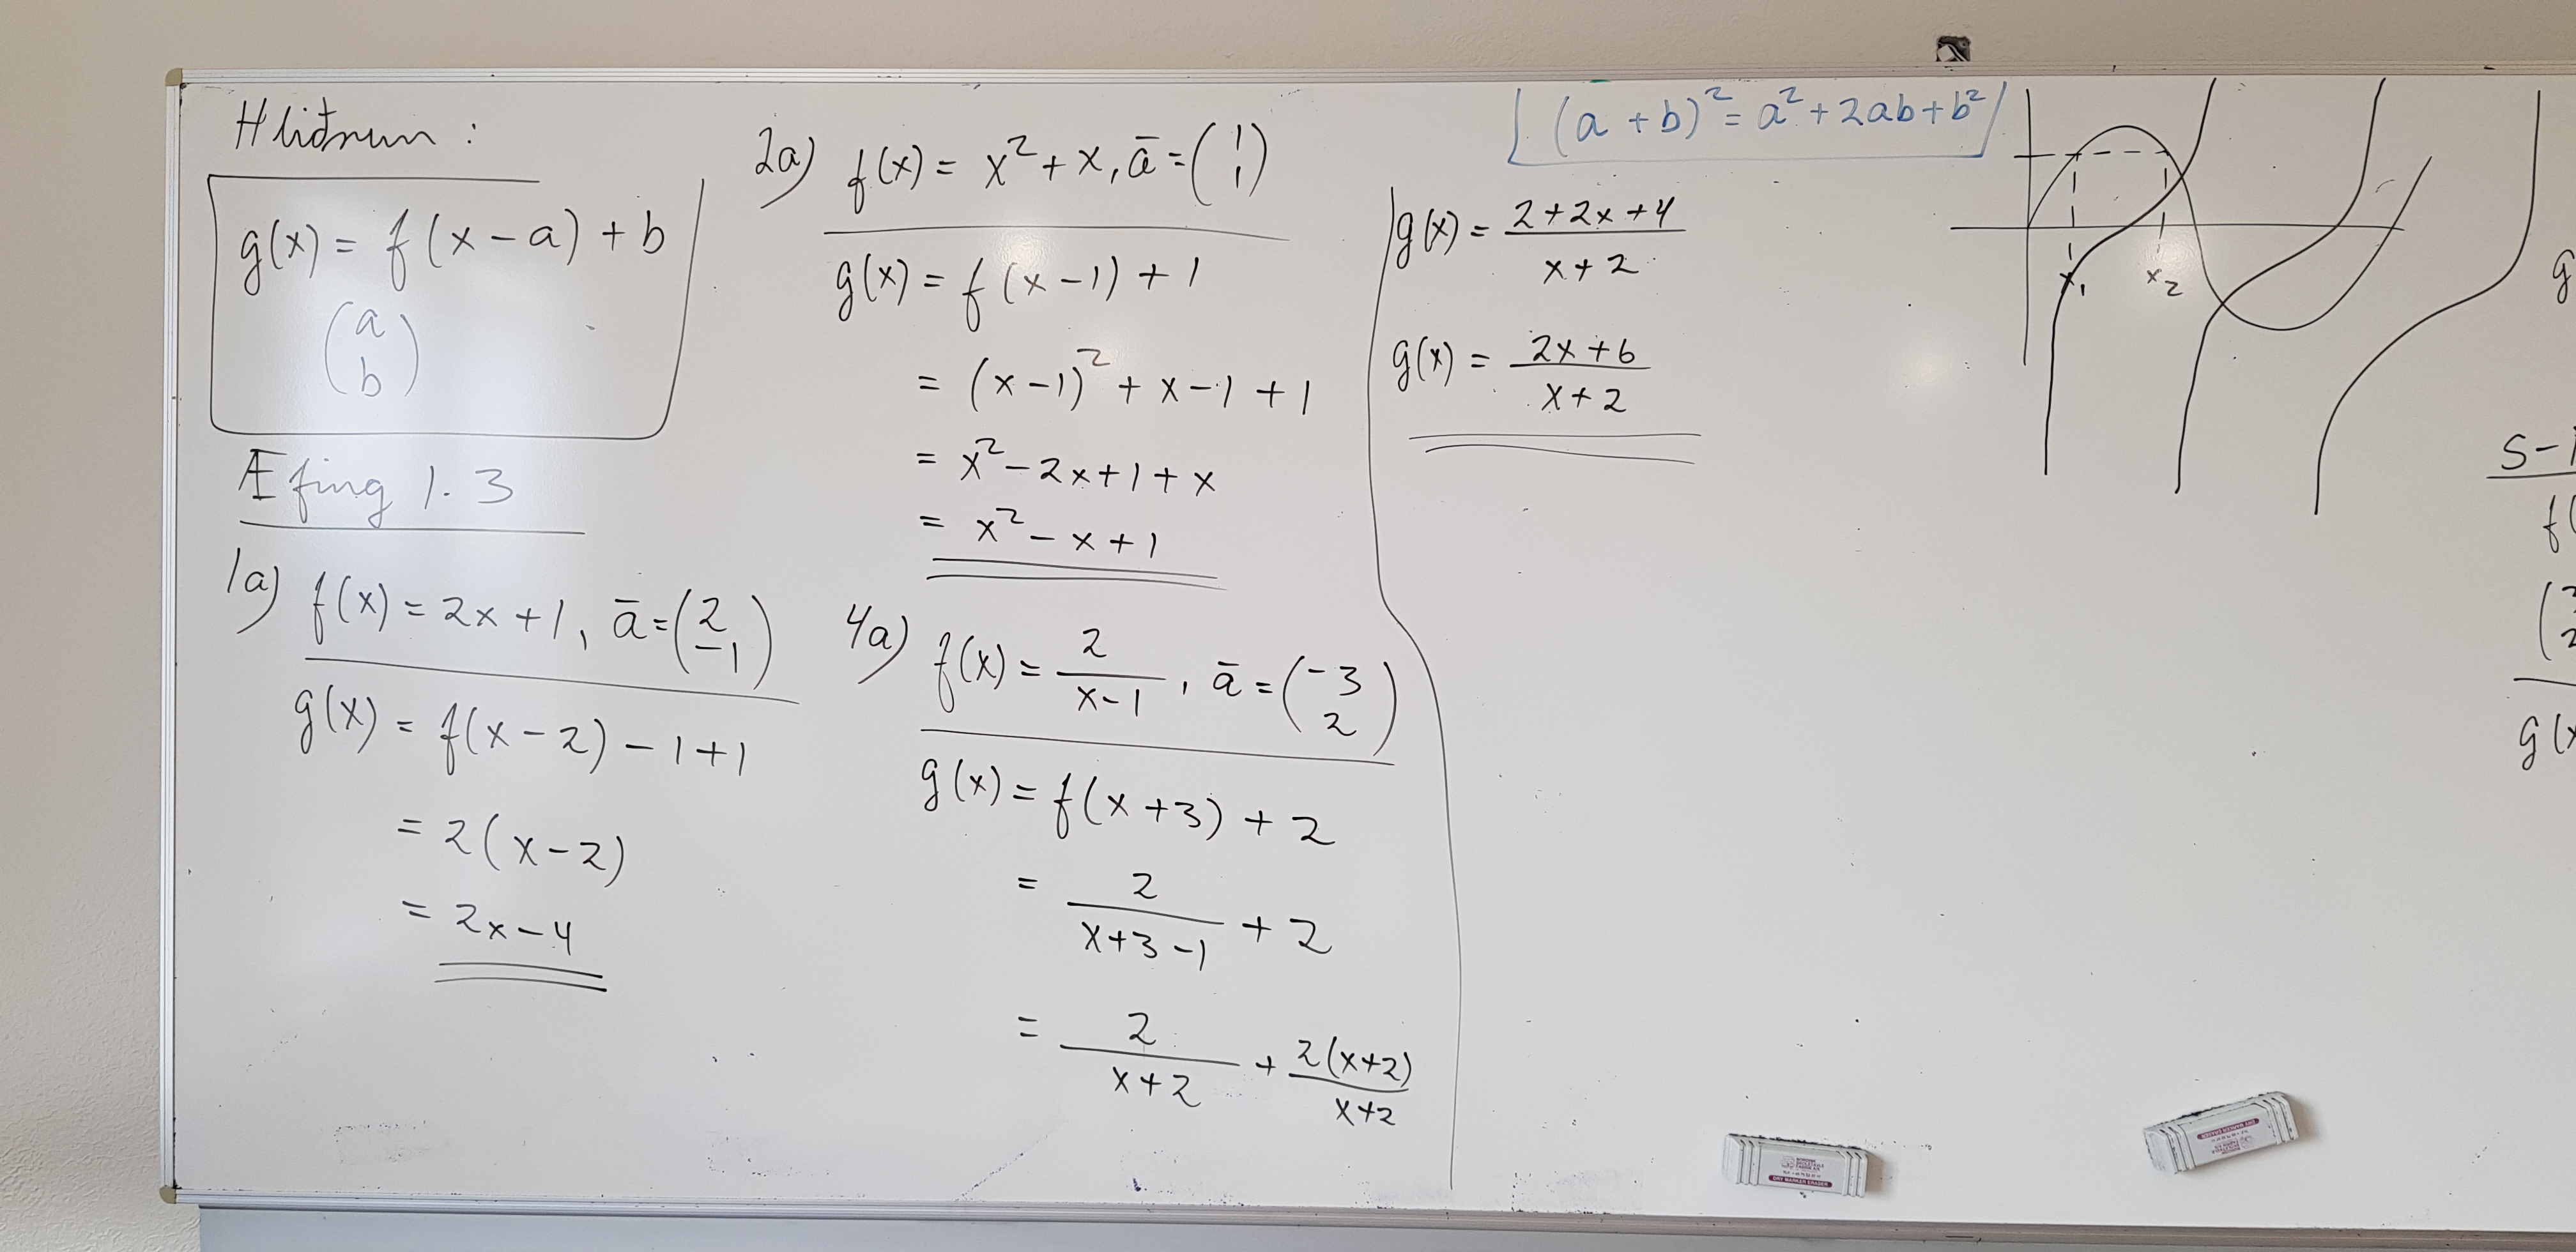 Hliðrun:
g(x) = f(x-a) + b
(a
b)
Æfing 1.3
1a) f(x) = 2x+1, ā = (2
-1)
g(x) = f(x-2) -1+1
= 2(x-2)
= 2x-4
2a) f(x) = x² + x, ā = (1
1)
g(x) = f(x-1) + 1
= (x-1)² + x-1 + 1
= x² - 2x + 1 + x
= x² - x + 1
4a) f(x) = 2/(x-1), ā = (-3
2)
g(x) = f(x+3) + 2
= 2/(x+3-1) + 2
= 2/(x+2) + 2(x+2)/(x+2)
(a+b)² = a² + 2ab + b²
g(x) = (2+2x+4)/(x+2)
g(x) = (2x+6)/(x+2)
x₁ x₂
g
S-
f(
g(x
DRY MARKER ERASER